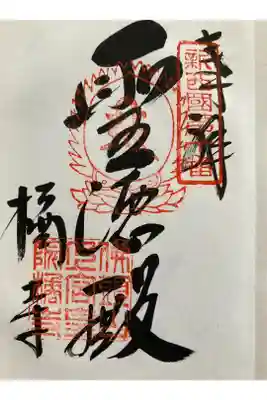 奉拝
新西國第十番
聖徳殿
佛頭山
上宮皇
院橘寺
橘寺